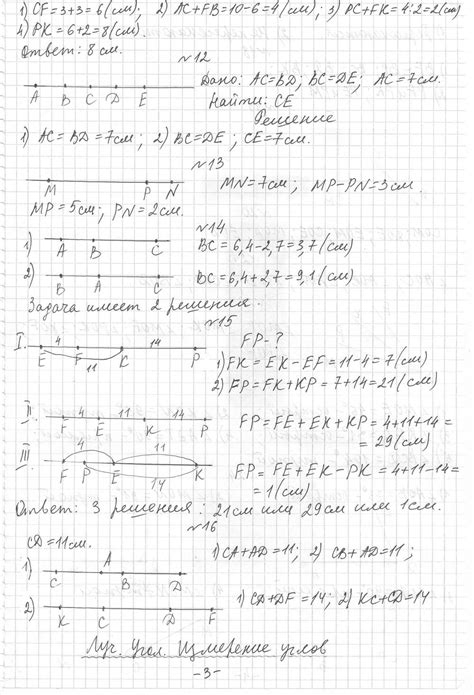 1) CF=3+3=6(см); 2) AC+FB=10-6=4(см); 3) PC+FK=4:2=2(см)
4) PK=6+2=8(см).
Ответ: 8 см.
№12
Дано: AC=BD; BC=DE; AC=7см.
A B C D E
Найти: CE
Решение
1) AC=BD=7см; 2) BC=DE; CE=7см.
№13
M P N
MN=7см; MP-PN=3см.
MP=5см; PN=2см.
№14
1) A B C BC=6,4-2,7=3,7(см)
2) B A C BC=6,4+2,7=9,1(см)
Задача имеет 2 решения.
№15
I. 4 14 FP-?
E F K P
11
1) FK=EK-EF=11-4=7(см)
2) FP=FK+KP=7+14=21(см)
II. 4 11 14
F E K P
FP=FE+EK+KP=4+11+14=
=29(см)
III 4 11
F P E K
14
FP=FE+EK-PK=4+11-14=
=1(см)
Ответ: 3 решения: 21см или 29см или 1см.
№16
CD=11см.
1) C A B D
1) CA+AD=11; 2) CB+AD=11;
2) K C D F
1) CD+DF=14; 2) KC+CD=14
Луч. Угол. Измерение углов
-3-